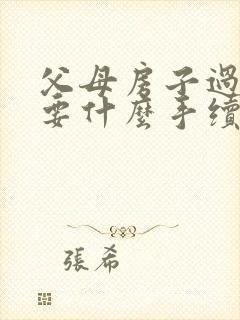 父母房子過
要什麼手續
張希